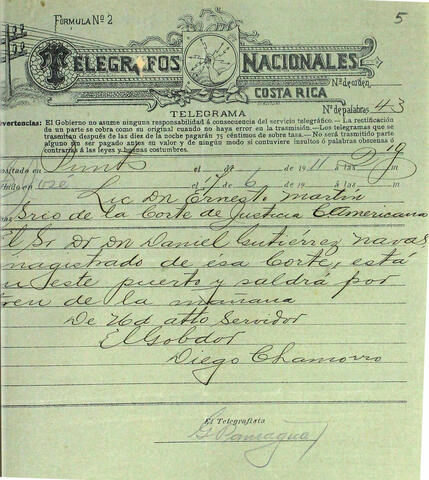 FÓRMULA Nº 2
5
TELEGRAFOS NACIONALES
COSTA RICA
Nº de orden
Nº de palabras 43
TELEGRAMA
vertencias: El Gobierno no asume ninguna responsabilidad á consecuencia del servicio telegráfico.—La rectificación
de un parte se cobra como su original cuando no haya error en la trasmisión.—Los telegramas que se
trasmitan después de las diez de la noche pagarán 75 céntimos de sobre tasa.—No será trasmitido parte
alguno sin ser pagado antes su valor y de ningún modo si contuviere insultos ó palabras obscenas ó
contrarias á las leyes y buenas costumbres.
ositado en Punts el de 1911 á las m
bido en ose 17 de 6 de 19 á las m
Lic Dn Ernesto Martín
Srio de la Corte de Justicia C americana
El Sr Dr Dn Daniel Gutiérrez Navas
magistrado de esa Corte, está
n este puerto y saldrá por
tren de la mañana
De Ud atto Servidor
El Gobdor
Diego Chamorro
El Telegrafista
G Paniagua